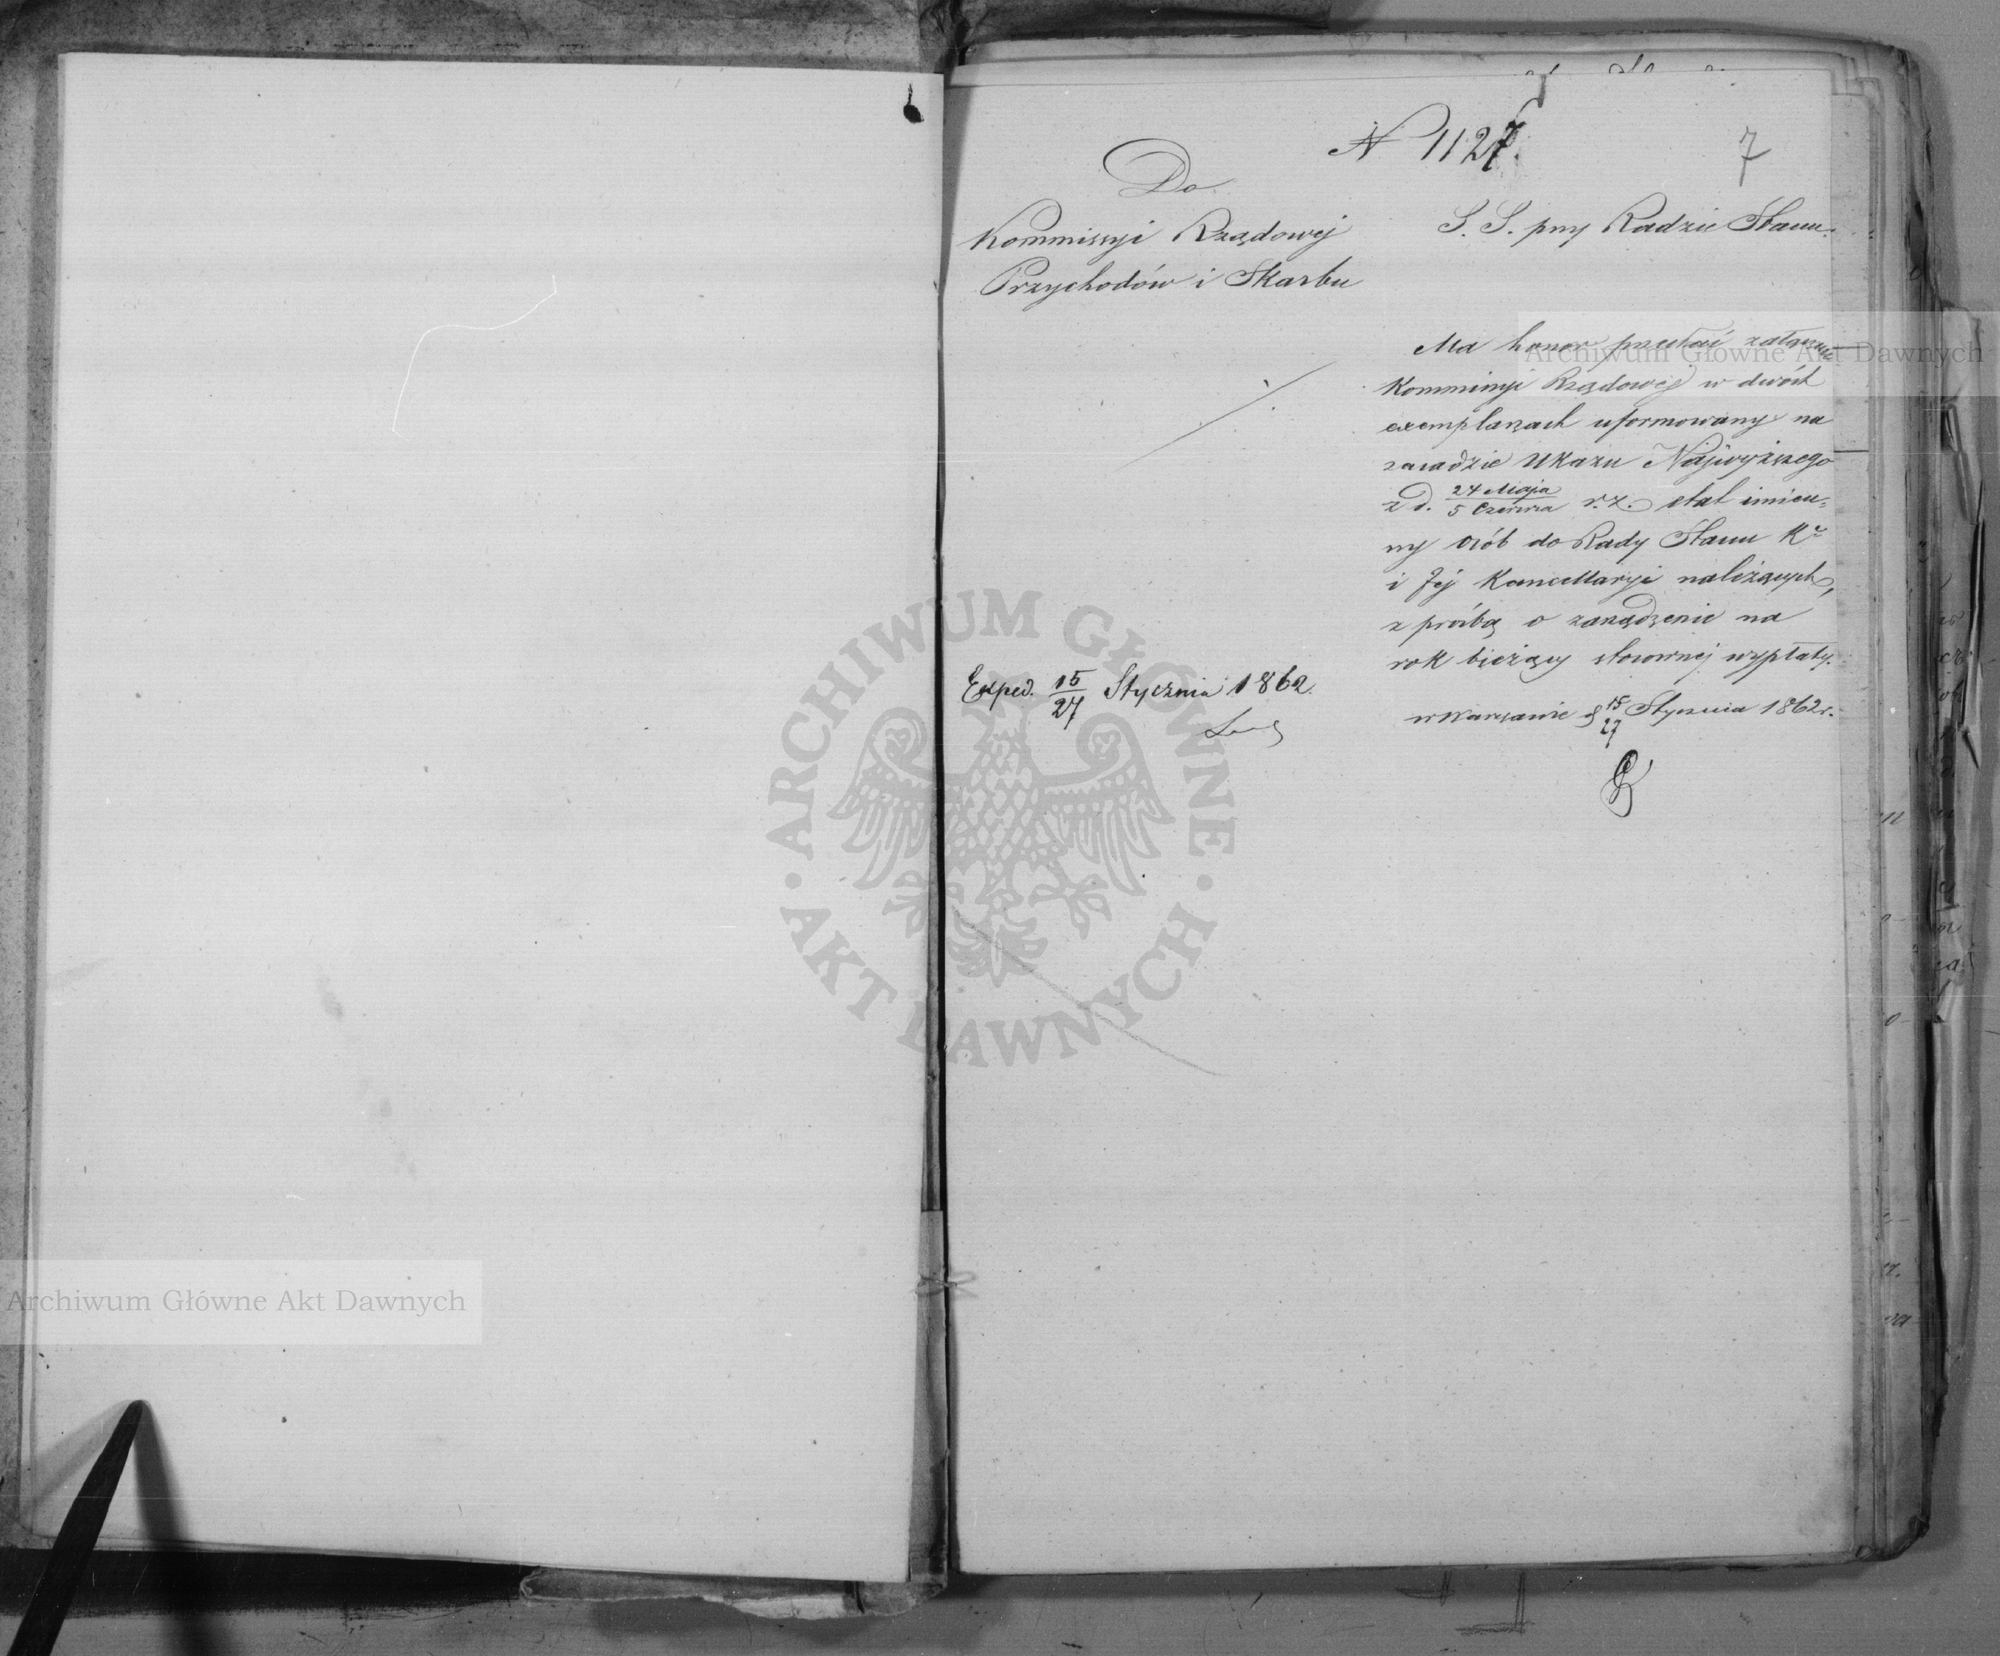 N 1127.
7
Do
Kommissyi Rządowej
Przychodów i Skarbu
S. S. przy Radzie Stanu.
Ma honor przesłać załącznie
Kommissyi Rządowej w dwóch
exemplarzach uformowany na
zasadzie Ukazu Najwyższego
z d. 24 Maja / 5 Czerwca r. z. etat imien-
ny osób do Rady Stanu Kr
i Jej Kancellaryi należących,
z prośbą o zarządzenie na
rok bieżący stosownej wypłaty.
w Warszawie d 15/27 Stycznia 1862 r.
Exped. 15/27 Stycznia 1862.
Archiwum Główne Akt Dawnych
ARCHIWUM GŁÓWNE AKT DAWNYCH
Archiwum Główne Akt Dawnych